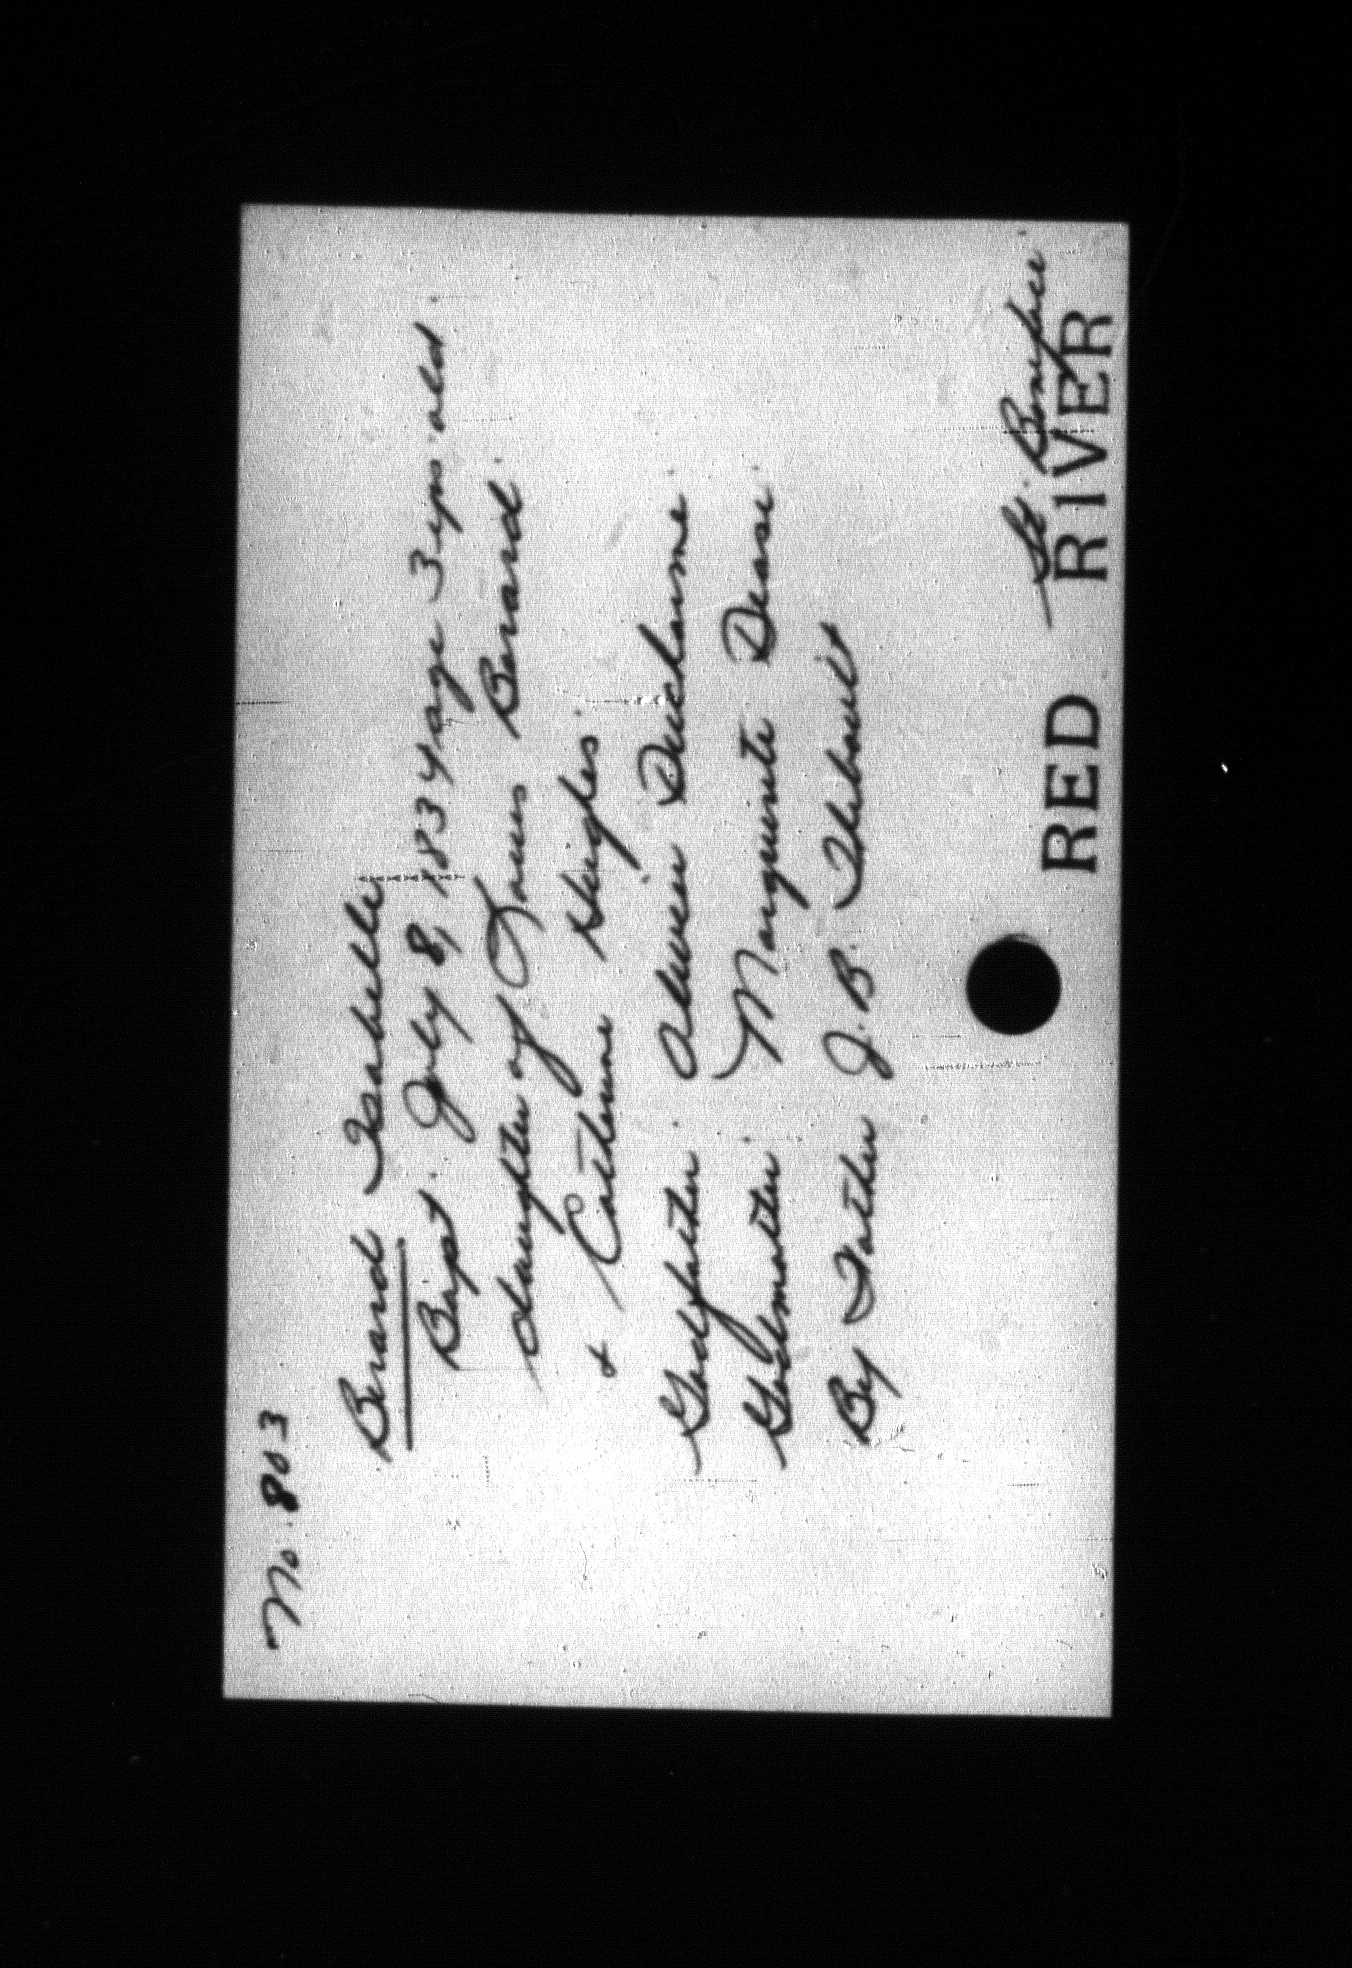 No. 803
Berard Isabelle
Bapt. July 8, 1834 age 3 yrs old.
daughter of Louis Barard.
& Catherine Hughes.
Godfather. Alwen Ducharme.
Godmother. Marguerite Dease.
By Father J. B. Thibault
St. Boniface
RED RIVER